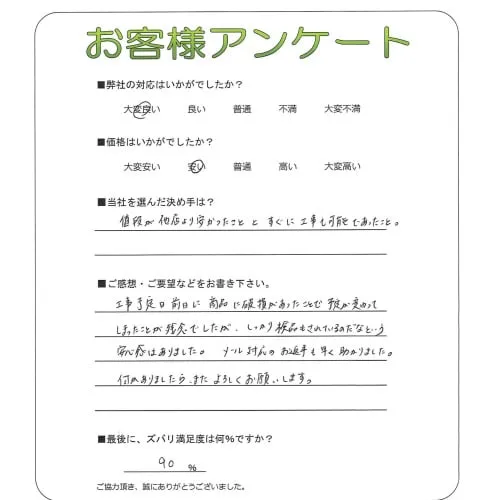 お客様アンケート
■弊社の対応はいかがでしたか？
大変良い 良い 普通 不満 大変不満
■価格はいかがでしたか？
大変安い 安い 普通 高い 大変高い
■当社を選んだ決め手は？
値段が他店より安かったことと すぐに工事も可能であったこと。
■ご感想・ご要望などをお書き下さい。
工事予定日前日に商品に破損があったことで予定が変わって
しまったことが残念でしたが、しっかり検品もされているのだなという
安心感はありました。メール対応のお返事も早く助かりました。
何かありましたら、またよろしくお願いします。
■最後に、ズバリ満足度は何％ですか？
90 %
ご協力頂き、誠にありがとうございました。